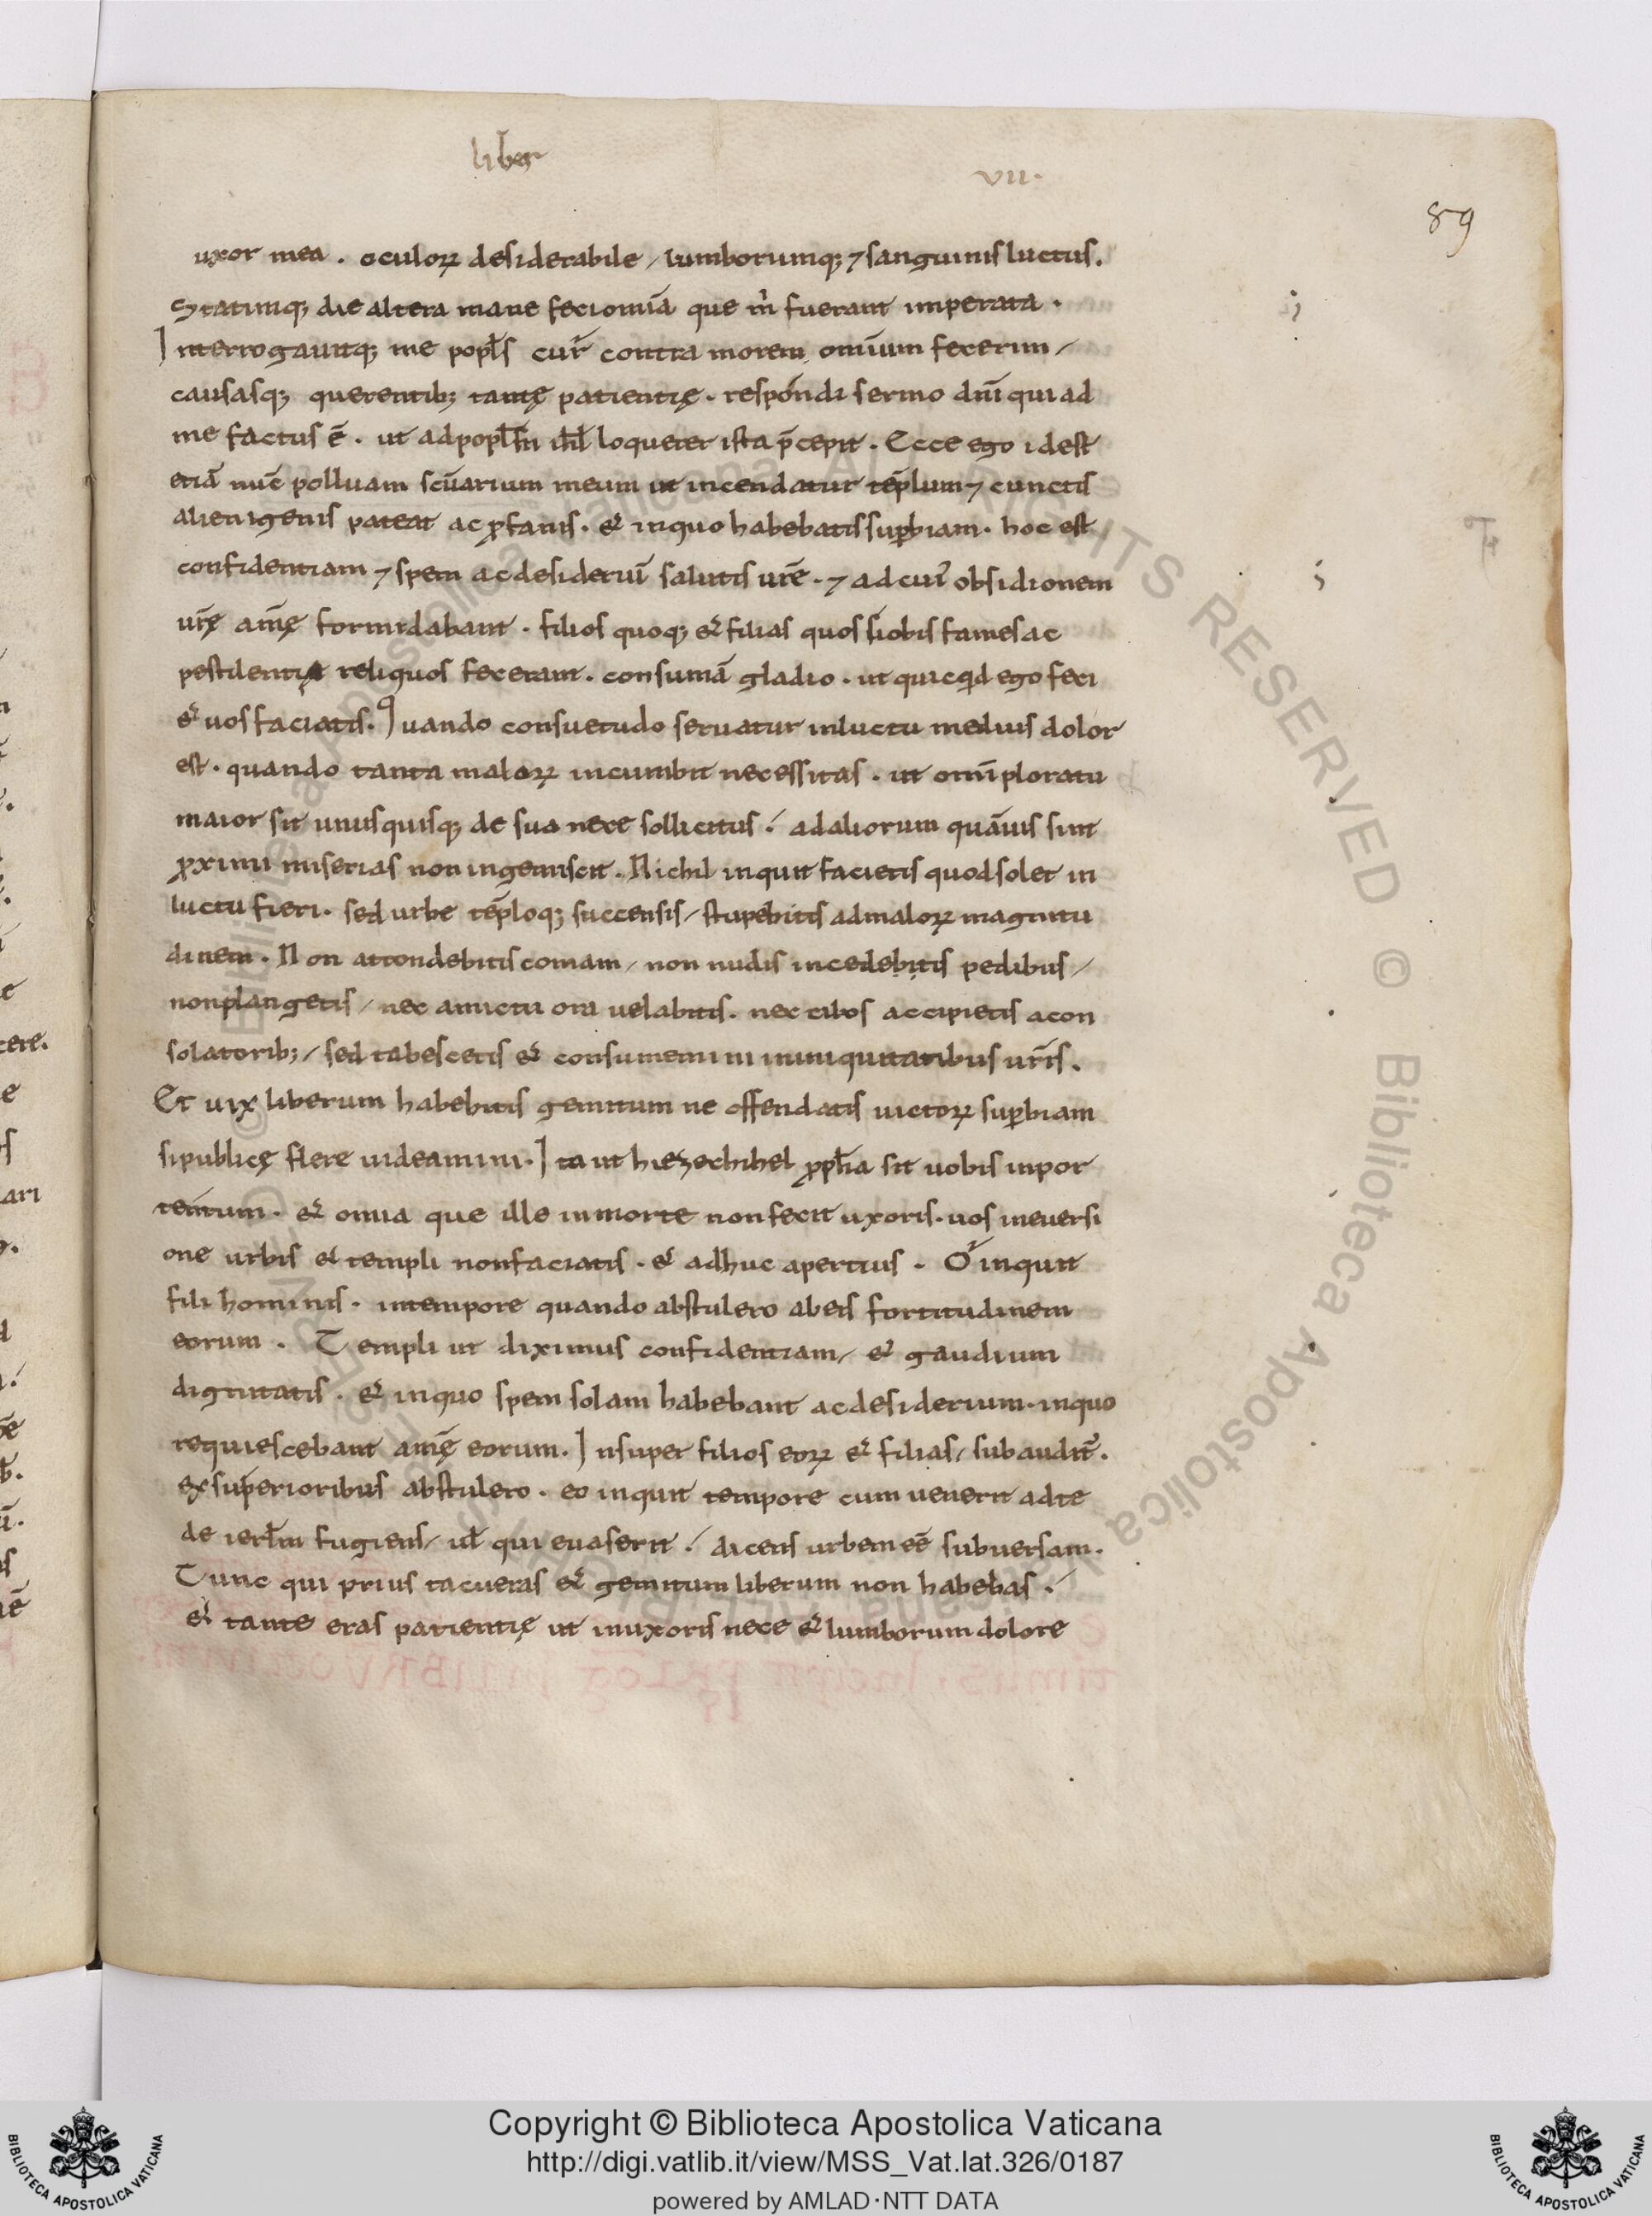 liber
vii.
89
uxor mea . oculoꝝ desiderabile / lumborumq; ⁊ sanguinis luctus.
Statimq; die altera mane feci om̄ia que m̉ fuerant imperata .
Interrogauitq; me popl̄s cur contra morem omīum fecerim /
causasq; querentib; tantę patientię . respondi sermo dnī qui ad
me factus ē . ut ad popl̄m isrl̄ loqueter ista p̄cepit . Ecce ego idest
etiā nūc polluam scūarium meum ut incendatur tēplum ⁊ cunctis
alienigenis pateat ac ꝓfanis . & inquo habebatis suꝑbiam . hoc est
confidentiam ⁊ spem ac desideriū salutis urē . ⁊ ad cuiꝰ obsidionem
urę̄ anīę formidabant . filios quoq; & filias quos uobis fames ac
pestilentia reliquos fecerant . consumā gladio . ut quicqd ego feci
& uos faciatis. Quando consuetudo seruatur inluctu medius dolor
est . quando tanta maloꝝ incumbit necessitas . ut omī ploratu
maior sit unusquisq; de sua nece sollicitus / ad aliorum quāuis sint
ꝓximi miserias non ingemiscit . Nichil inquit facietis quod solet in
luctu fieri . sed urbe tēploq; succensis / stupebitis admaloꝝ magnitu
dinem . Non attondebitis comam / non nudis incedebitis pedibus /
nonplangetis / nec amictu ora uelabitis . nec cibos accipietis acon
solatorib; / sed tabescetis & consumemini ininiquitatibus urīs .
Et uix liberum habebitis gemitum ne offendatis uictoꝝ suꝑbiam
sipublicę flere uideamini . Ita ut hiezechihel ꝓph̄a sit uobis inpor
tentum . & omia que ille inmorte nonfecit uxoris . uos ineuersi
one urbis & templi nonfaciatis . & adhuc apertius . O inquit
fili hominis . intempore quando abstulero abeis fortitudinem
eorum . Templi ut diximus confidentiam / & gaudium
dignitatis . & inquo spem solam habebant acdesiderium . inquo
requiescebant anīę eorum . Insuper filios eoꝝ & filias / subaudit̄ .
exsuperioribus abstulero . eo inquit tempore cum uenerit adte
de ierl̄m fugiens / ul̄ qui euaserit / dicens urbem eē subuersam .
Tunc qui prius tacueras & gemitum liberum non habebas /
& tante eras patientię ut inuxoris nece & lumborum dolore
Copyright © Biblioteca Apostolica Vaticana
http://digi.vatlib.it/view/MSS_Vat.lat.326/0187
powered by AMLAD·NTT DATA